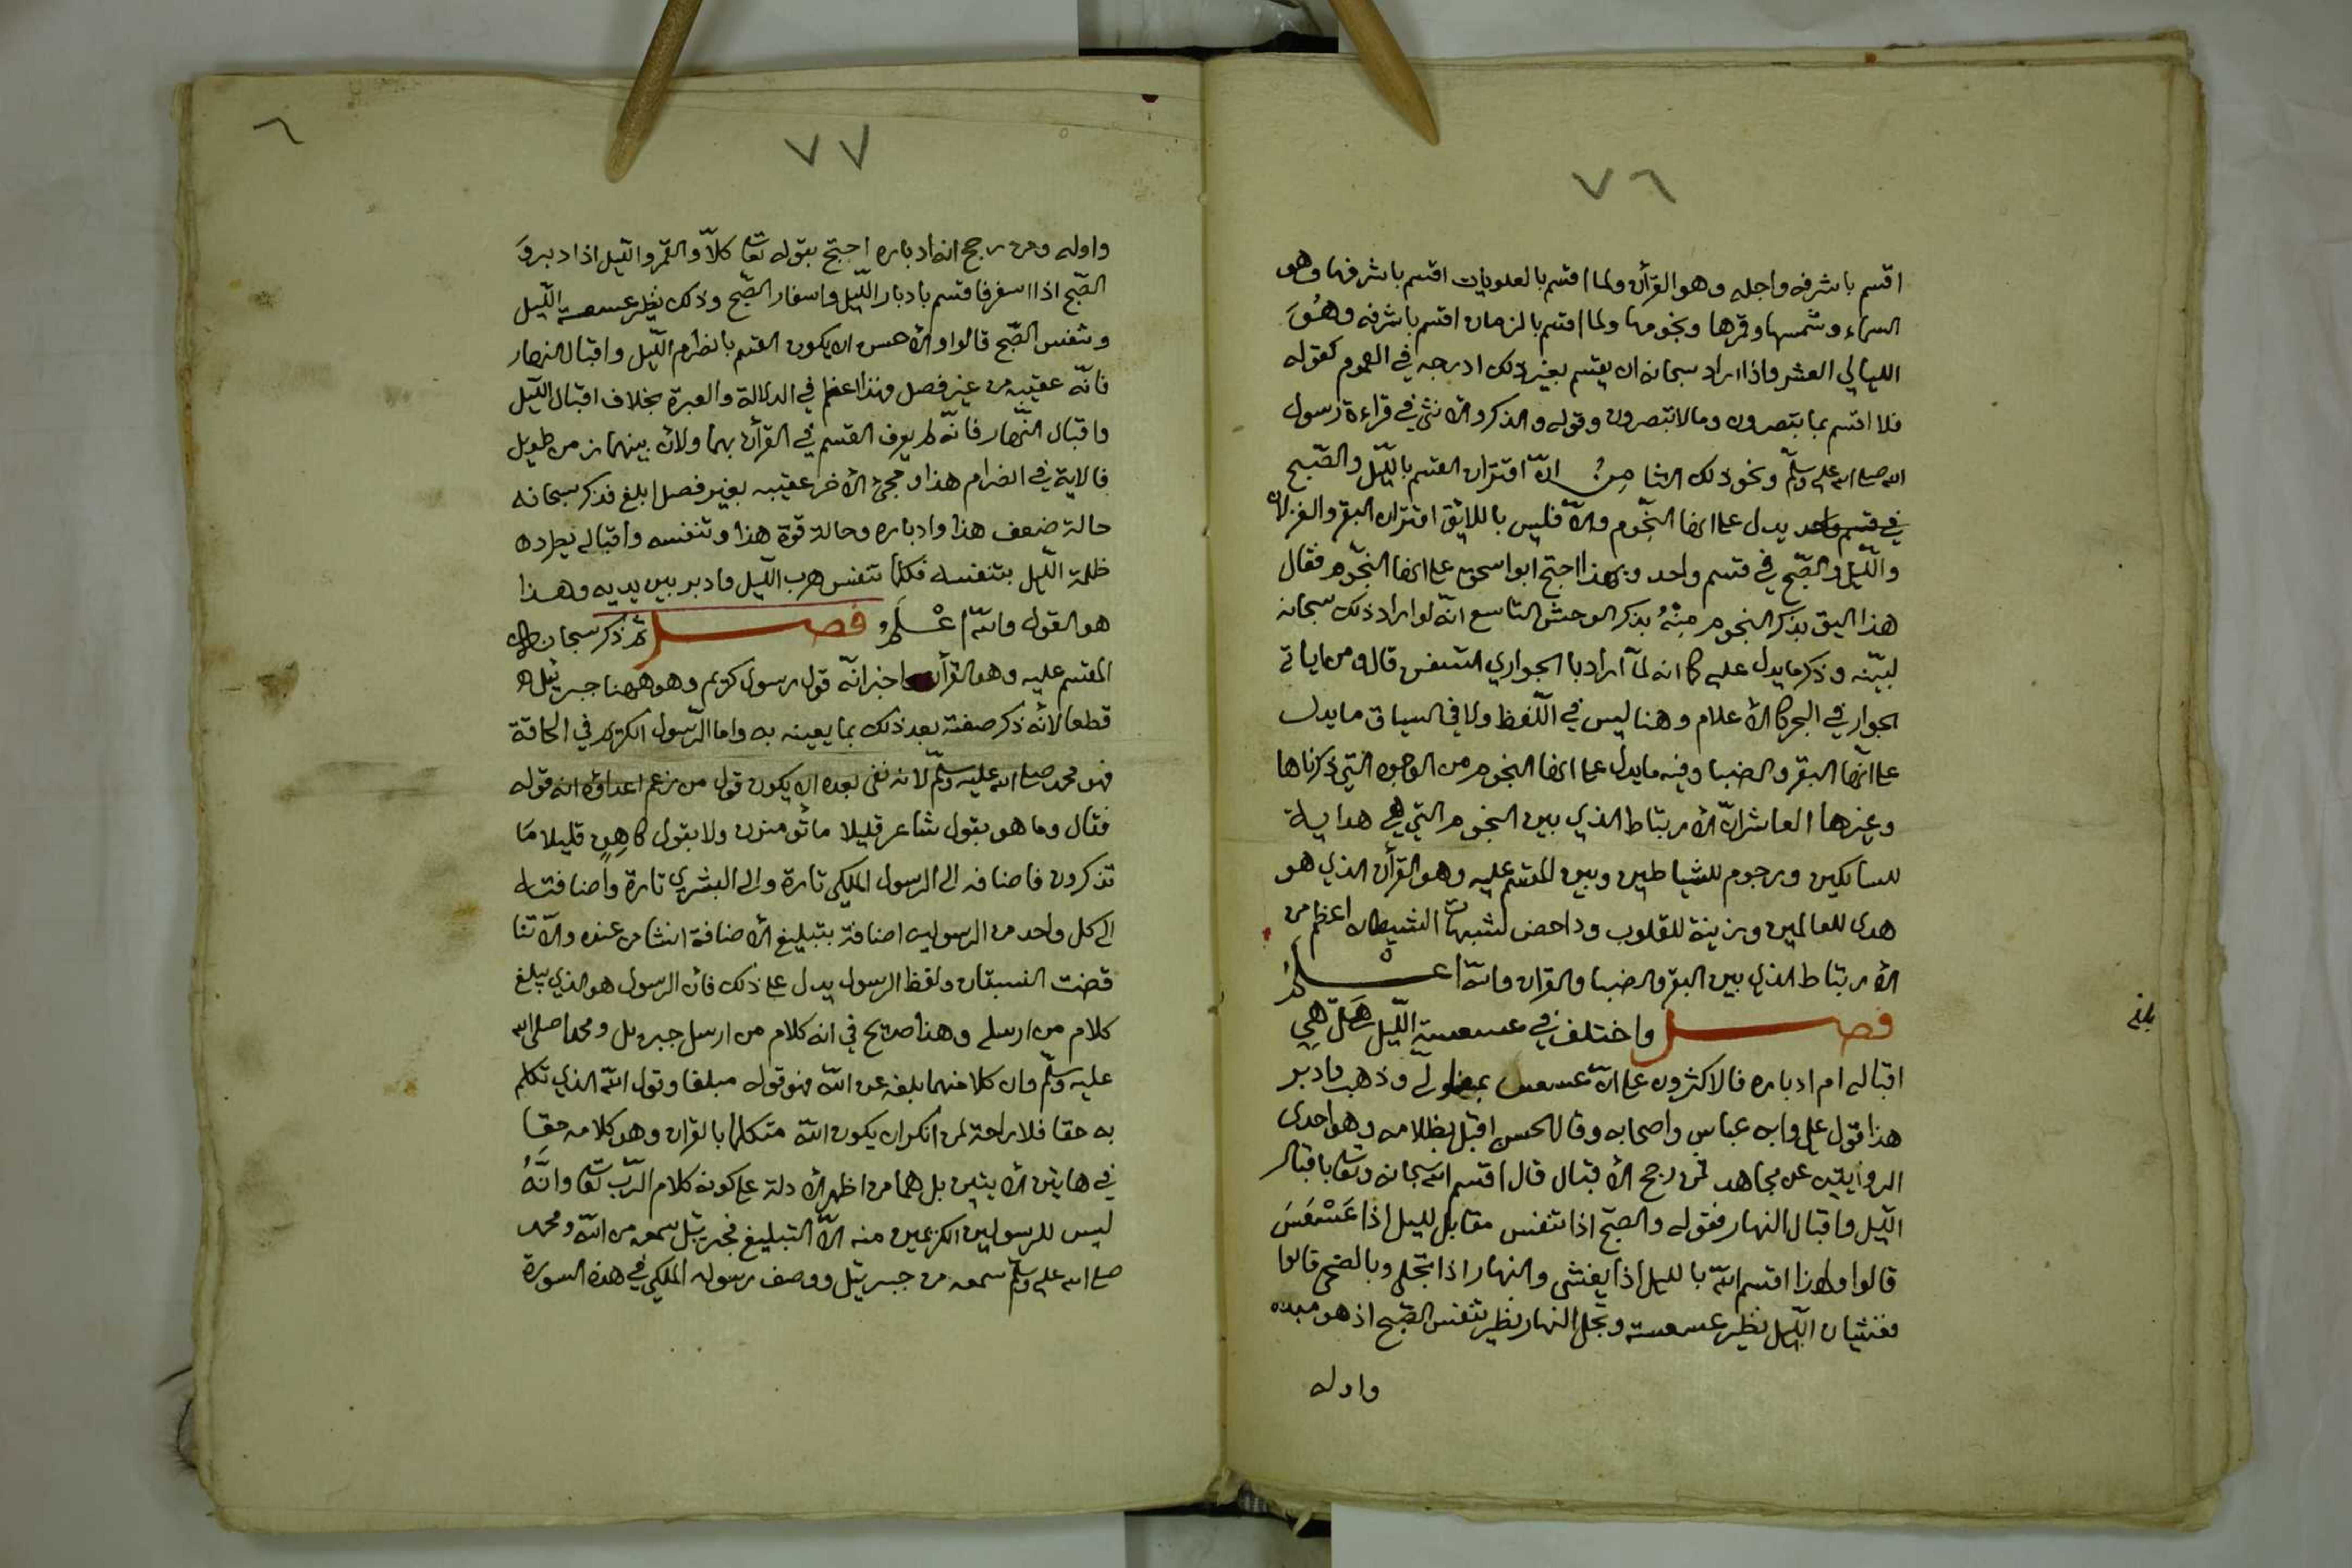 ٧٦
اقسم باشرفه واجله وهو القرأن ولما اقسم بالعلويات اقسم باشرفها وهو
السماء وشمسها وقمرها ونجومها ولما اقسم بالزمان اقسم باشرفه وهُوَ
الليالي العشر واذا اراد سبحانه ان يقسم بغير ذلك ادرجه في العموم كقوله
فلا اقسم بما تبصرون وما لا تبصرون وقوله والذكر والانثى في قراءة رسول
الله صلى الله عليه وسلّم ونحو ذلك الثامِنُ انّ اقتران القسم باللّيل والصّبح
في قسم واحد يدل على انها النجّوم والّا فليس باللايق اقتران البقر والغزلان
واللّيل والصّبح في قسم واحد وبهذا احتج ابو اسحق على انها النجّوم فقال
هذا اليق بذكر النجوم مِنْهُ بذكر الوحش التاسع انّه لو اراد ذلك سبحانه
لبيّنه وذكر ما يدل عليه كما انه لمّا اراد با الجواري السفن قال ومن اياته
الجوار في البحر كالأعلام وهنا ليس في اللّفظ ولا في السياق ما يدل
على انّها البقر والضبا وفيه ما يدل على انها النجوم من الوجوه التي ذكرناها
وغيرها العاشر انّ الأرتباط الذي بين النجوم التي هي هداية
للسالكين ورجوم للشياطين وبين المقسم عليه وهو القرأن الذي هو
هدى للعالمين وزينة للقلوب وداحض لشبهات الشيطان اعظم من
الأرتباط الذي بين البقر والضبا والقران والله اعلم
فصل واختلف في عسعسة اللّيل هَلْ هِي
بلغ
اقباله ام ادباره فالاكثرون على انّ عسعس بمعنى ولّى وذهب وادبر
هذا قول علي وابن عباس واصحابه وقال الحسن اقبل بظلامه وهو احدى
الروايتين عن مجاهد فمن رجح الأقبال قال اقسم الله سبحانه وتعالى باقبال
اللّيل واقبال النهار فقوله والصبح اذا تنفس مقابل لليل اذا عَسْعَسَ
قالوا ولهذا اقسم الله بالليل اذا يغشى والنهار اذا تجلى وبالضحى قالوا
فغشيان اللّيل نظير عسعسته وتجلى النهار نظير تنفس الصّبح اذ هو مبدءه
واوله
٧٧
٦
واوله ومن رجح انه ادباره احتج بقوله تعالى كلاّ والقمر واللّيل اذ ادبر وَ
الصّبح اذا اسفر فاقسم بادبار اللّيل واسفار الصّبح وذلك نظير عسعسة اللّيل
وتنفس الصّبح قالوا والأحسن ان يكون القسم بانصرام اللّيل واقبال النهار
فانّه عقيبه من غير فصل وهذا اعظم في الدلالة والعبرة بخلاف اقبال اللّيل
واقبال النّهار فانّه لم يعرف القسم في القرأن بهما ولأن بينهما زمن طويل
فالاية في انصرام هذا ومجئ الأخر عقيبه بغير فصل ابلغ فذكر سبحانه
حالة ضعف هذا وادباره وحالة قوة هذا وتنفسه واقباله يطرد
ظلمة اللّيل بتنفسه فكلما تنفس هرب اللّيل وادبر بين يديه وهذا
هو القول والله اعْلَم فصل ثم ذكر سبحانه
المقسم عليه وهو القرأن واخبر انّه قول رسول كريم وهو ههنا جبريل
قطعا لأنّه ذكر صفته بعد ذلك بما يعينه به واما الرّسول الكريم في الحاقة
فهو محمد صلى الله عليه وسلّم لأنه نفى بعده ان يكون قول من زعم اعداؤه انه قوله
فقال وما هو بقول شاعر قليلا ما تؤمنون ولا بقول كاهِنٍ قليلا مَا
تذكرون فاضافه الى الرسول الملكي تارة والى البشري تارة واضافته
الى كل واحد من الرسولين اضافة بتبليغ لأ اضافة انشا من عنده والّا تنا
قضت النسبتان ولفظ الرسول يدل على ذلك فان الرسول هو الذي يبلغ
كلام من ارسله وهذا صريح في انه كلام من ارسل جبريل ومحمد صلى الله
عليه وسلّم وان كلا منهما بلغه عن الله فهو قوله مبلغا وقول الله الذي تكلم
به حقا فلا راحة لمن انكر ان يكون الله متكلما بالقران وهو كلامه حقا
في هايتن الأيتين بل هما من اظهر الأدلة على كونه كلام الرّب تعالى وانّهُ
ليس للرسولين الكريمين منه الّا التبليغ فجبريل سمعه من الله ومحمد
صلى الله عليه وسلّم سمعه من جبريل ووصف رسوله الملكي في هذه السورة